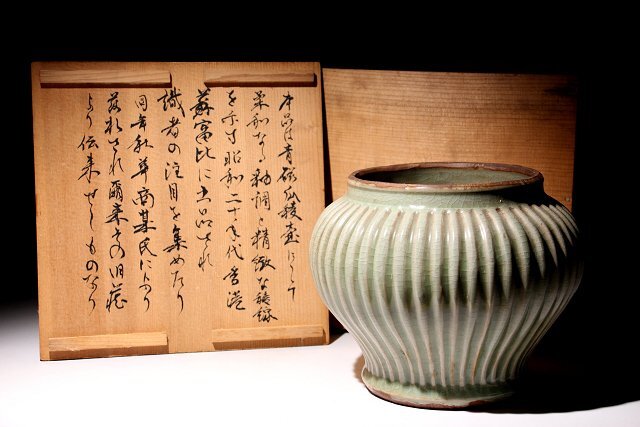 本品は青磁瓜稜壺にして
柔和なる釉調と精緻な稜線
を示す昭和二十年代香港
蘇富比に出品され
識者の注目を集めたり
同年秋華商某氏により
落札され爾来その旧蔵
より伝来せしものなり